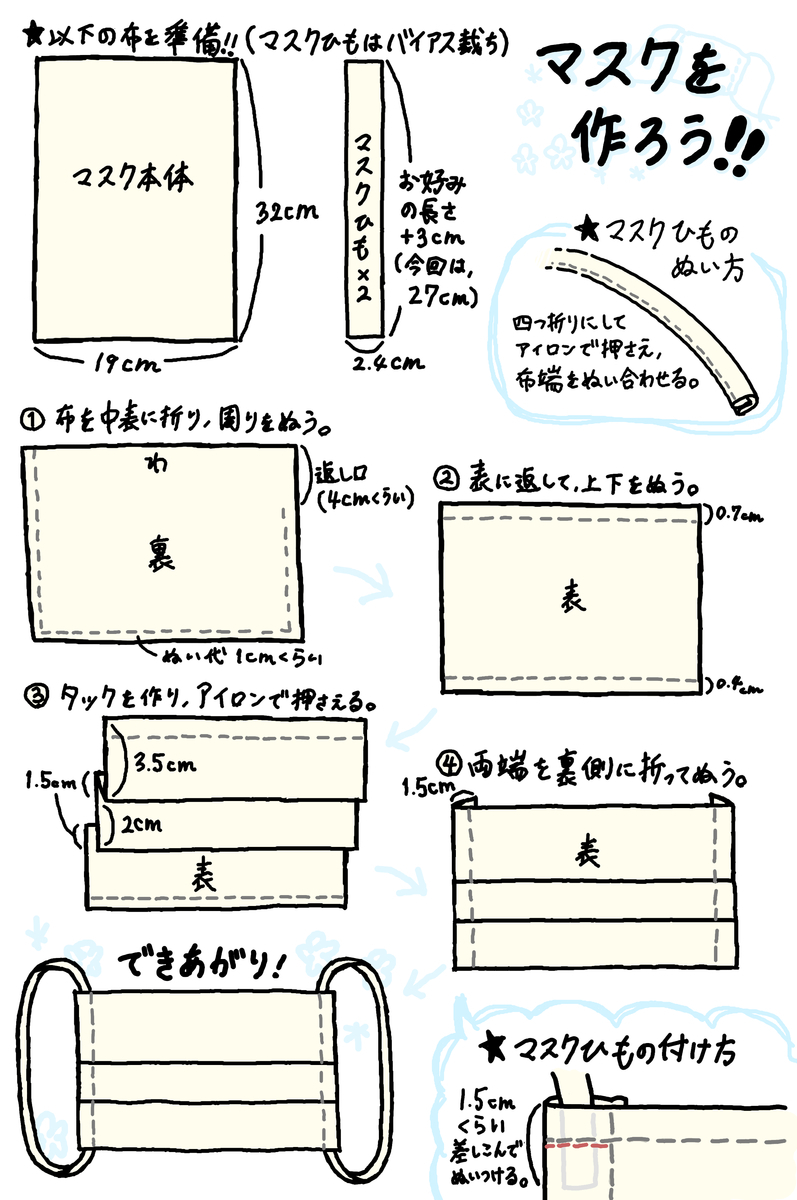 ★以下の布を準備!!(マスクひもはバイアス裁ち)
マスクを
作ろう!!
マスク本体
32cm
19cm
マスクひも×2
お好み
の長さ
+3cm
(今回は、
27cm)
2.4cm
★マスクひもの
ぬい方
四つ折りにして
アイロンで押さえ、
布端をぬい合わせる。
①布を中表に折り、周りをぬう。
わ
返し口
(4cmくらい)
裏
ぬい代1cmくらい
②表に返して、上下をぬう。
0.7cm
表
0.4cm
③タックを作り、アイロンで押さえる。
3.5cm
1.5cm
2cm
表
④両端を裏側に折ってぬう。
1.5cm
表
できあがり!
★マスクひもの付け方
1.5cm
くらい
差しこんで
ぬいつける。